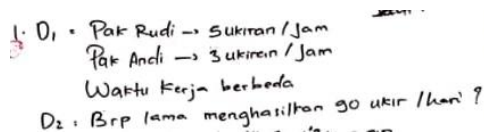 1. D₁ : Pak Rudi → 5 ukiran / Jam
Pak Andi → 3 ukiran / Jam
Waktu kerja berbeda
D₂ : Brp lama menghasilkan 90 ukir / hari ?